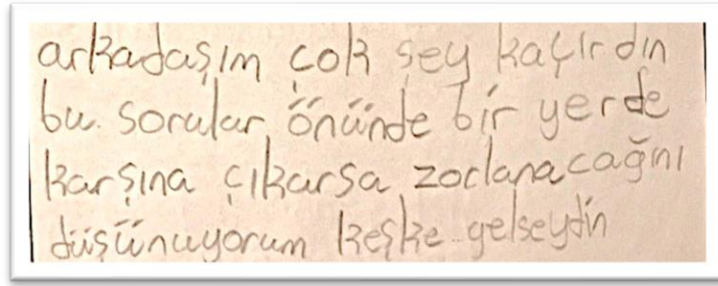 arkadaşım çok şey kaçırdın
bu sorular önünde bir yerde
karşına çıkarsa zorlanacağını
düşünuyorum keşke gelseydin